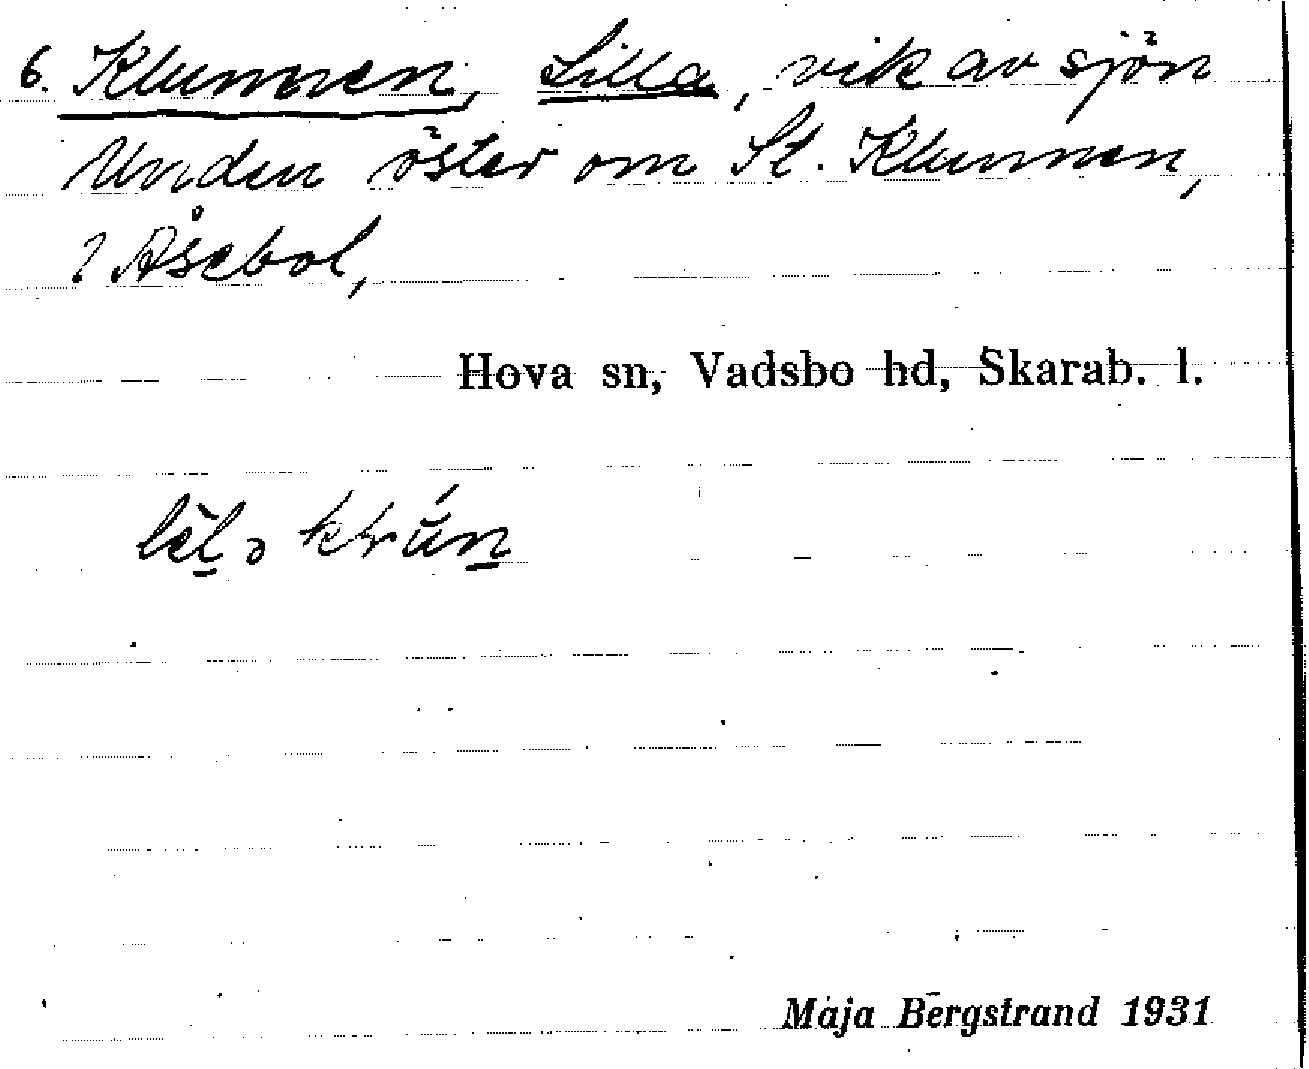 6. Klunnen, Lilla, vik av sjön
Unden öster om St. Klunnen,
? Åsebol,
Hova sn, Vadsbo hd, Skarab. l.
Maja Bergstrand 1931